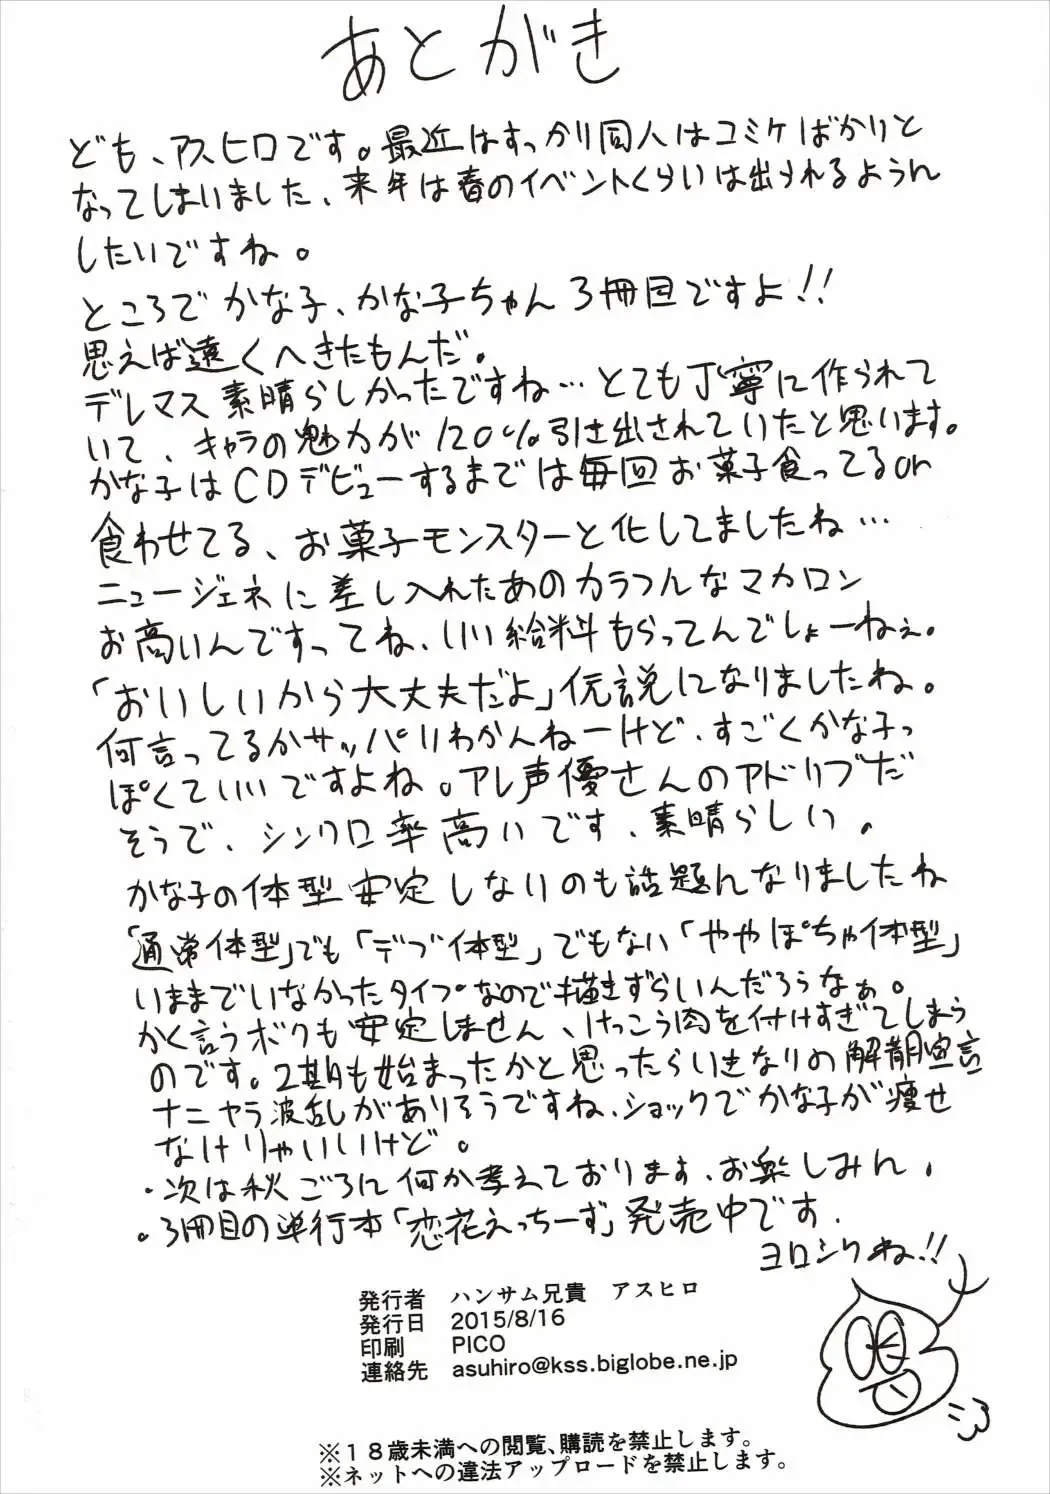 あとがき
ども、アスヒロです。最近はすっかり同人はコミケばかりと
なってしまいました、来年は春のイベントくらいは出られるようん
したいですね。
ところでかな子、かな子ちゃん3冊目ですよ!!
思えば遠くへきたもんだ。
デレマス素晴らしかったですね…とても丁寧に作られて
いて、キャラの魅力が120%引き出されていたと思います。
かな子はCDデビューするまでは毎回お菓子食ってるor
食わせてる、お菓子モンスターと化してましたね…
ニュージェネに差し入れたあのカラフルなマカロン
お高いんですってね、いい給料もらってんでしょーねぇ。
「おいしいから大丈夫だよ」伝説になりましたね。
何言ってるかサッパリわかんねーけど、すごくかな子っ
ぽくていいですよね。アレ声優さんのアドリブだ
そうで、シンクロ率高いです、素晴らしい。
かな子の体型安定しないのも話題んなりましたね
「通常体型」でも「デブ体型」でもない「ややぽちゃ体型」
いままでいなかったタイプなので描きずらいんだろうなぁ。
かく言うボクも安定しません、けっこう肉を付けすぎてしまう
のです。2期も始まったかと思ったらいきなりの解散宣言
ナニヤラ波乱がありそうですね、ショックでかな子が痩せ
なけりゃいいけど。
・次は秋ごろに何か考えております、お楽しみん。
・3冊目の単行本「恋花えっちーず」発売中です.
ヨロシクね!!
発行者 ハンサム兄貴 アスヒロ
発行日 2015/8/16
印刷 PICO
連絡先 asuhiro@kss.biglobe.ne.jp
※18歳未満への閲覧、購読を禁止します。
※ネットへの違法アップロードを禁止します。